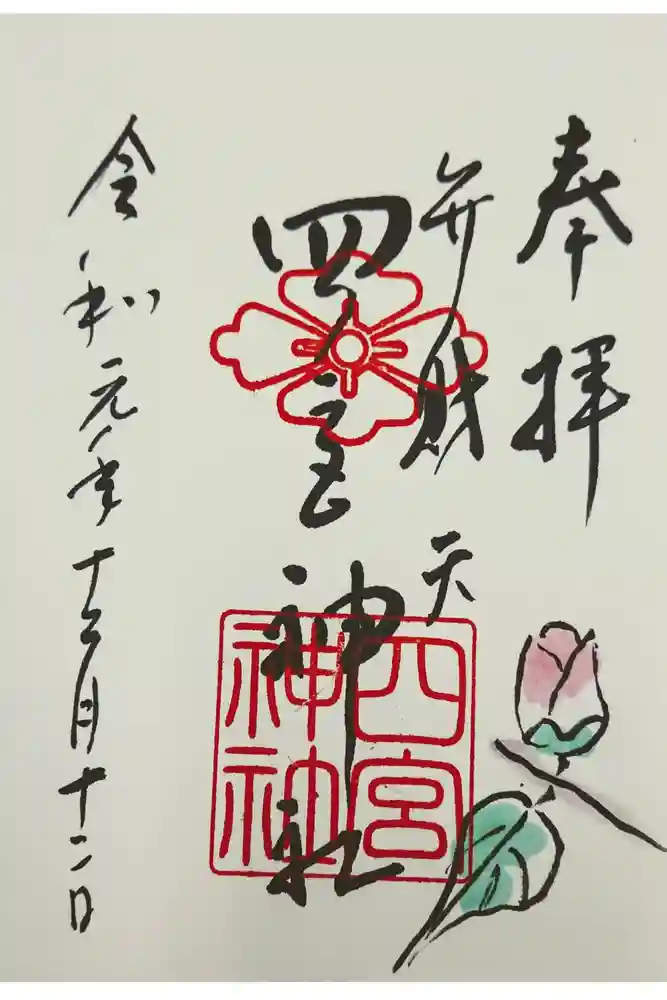 奉拝
弁財天
四ノ宮神社
四宮
神社
令和元年十二月十二日